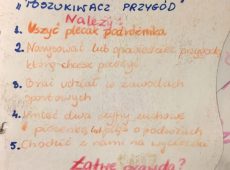 "POSZUKIWACZ PRZYGÓD"
Należy:
1. Uszyć plecak podróżnika
2. Narysować lub opowiedzieć przygodę którą chcesz przeżyć
3. Brać udział w zawodach
sportowych
4. Umieć dwa zuchowe
piosenki o podróżach
5. Chodzić z nami na wycieczki
Łatwe prawda?